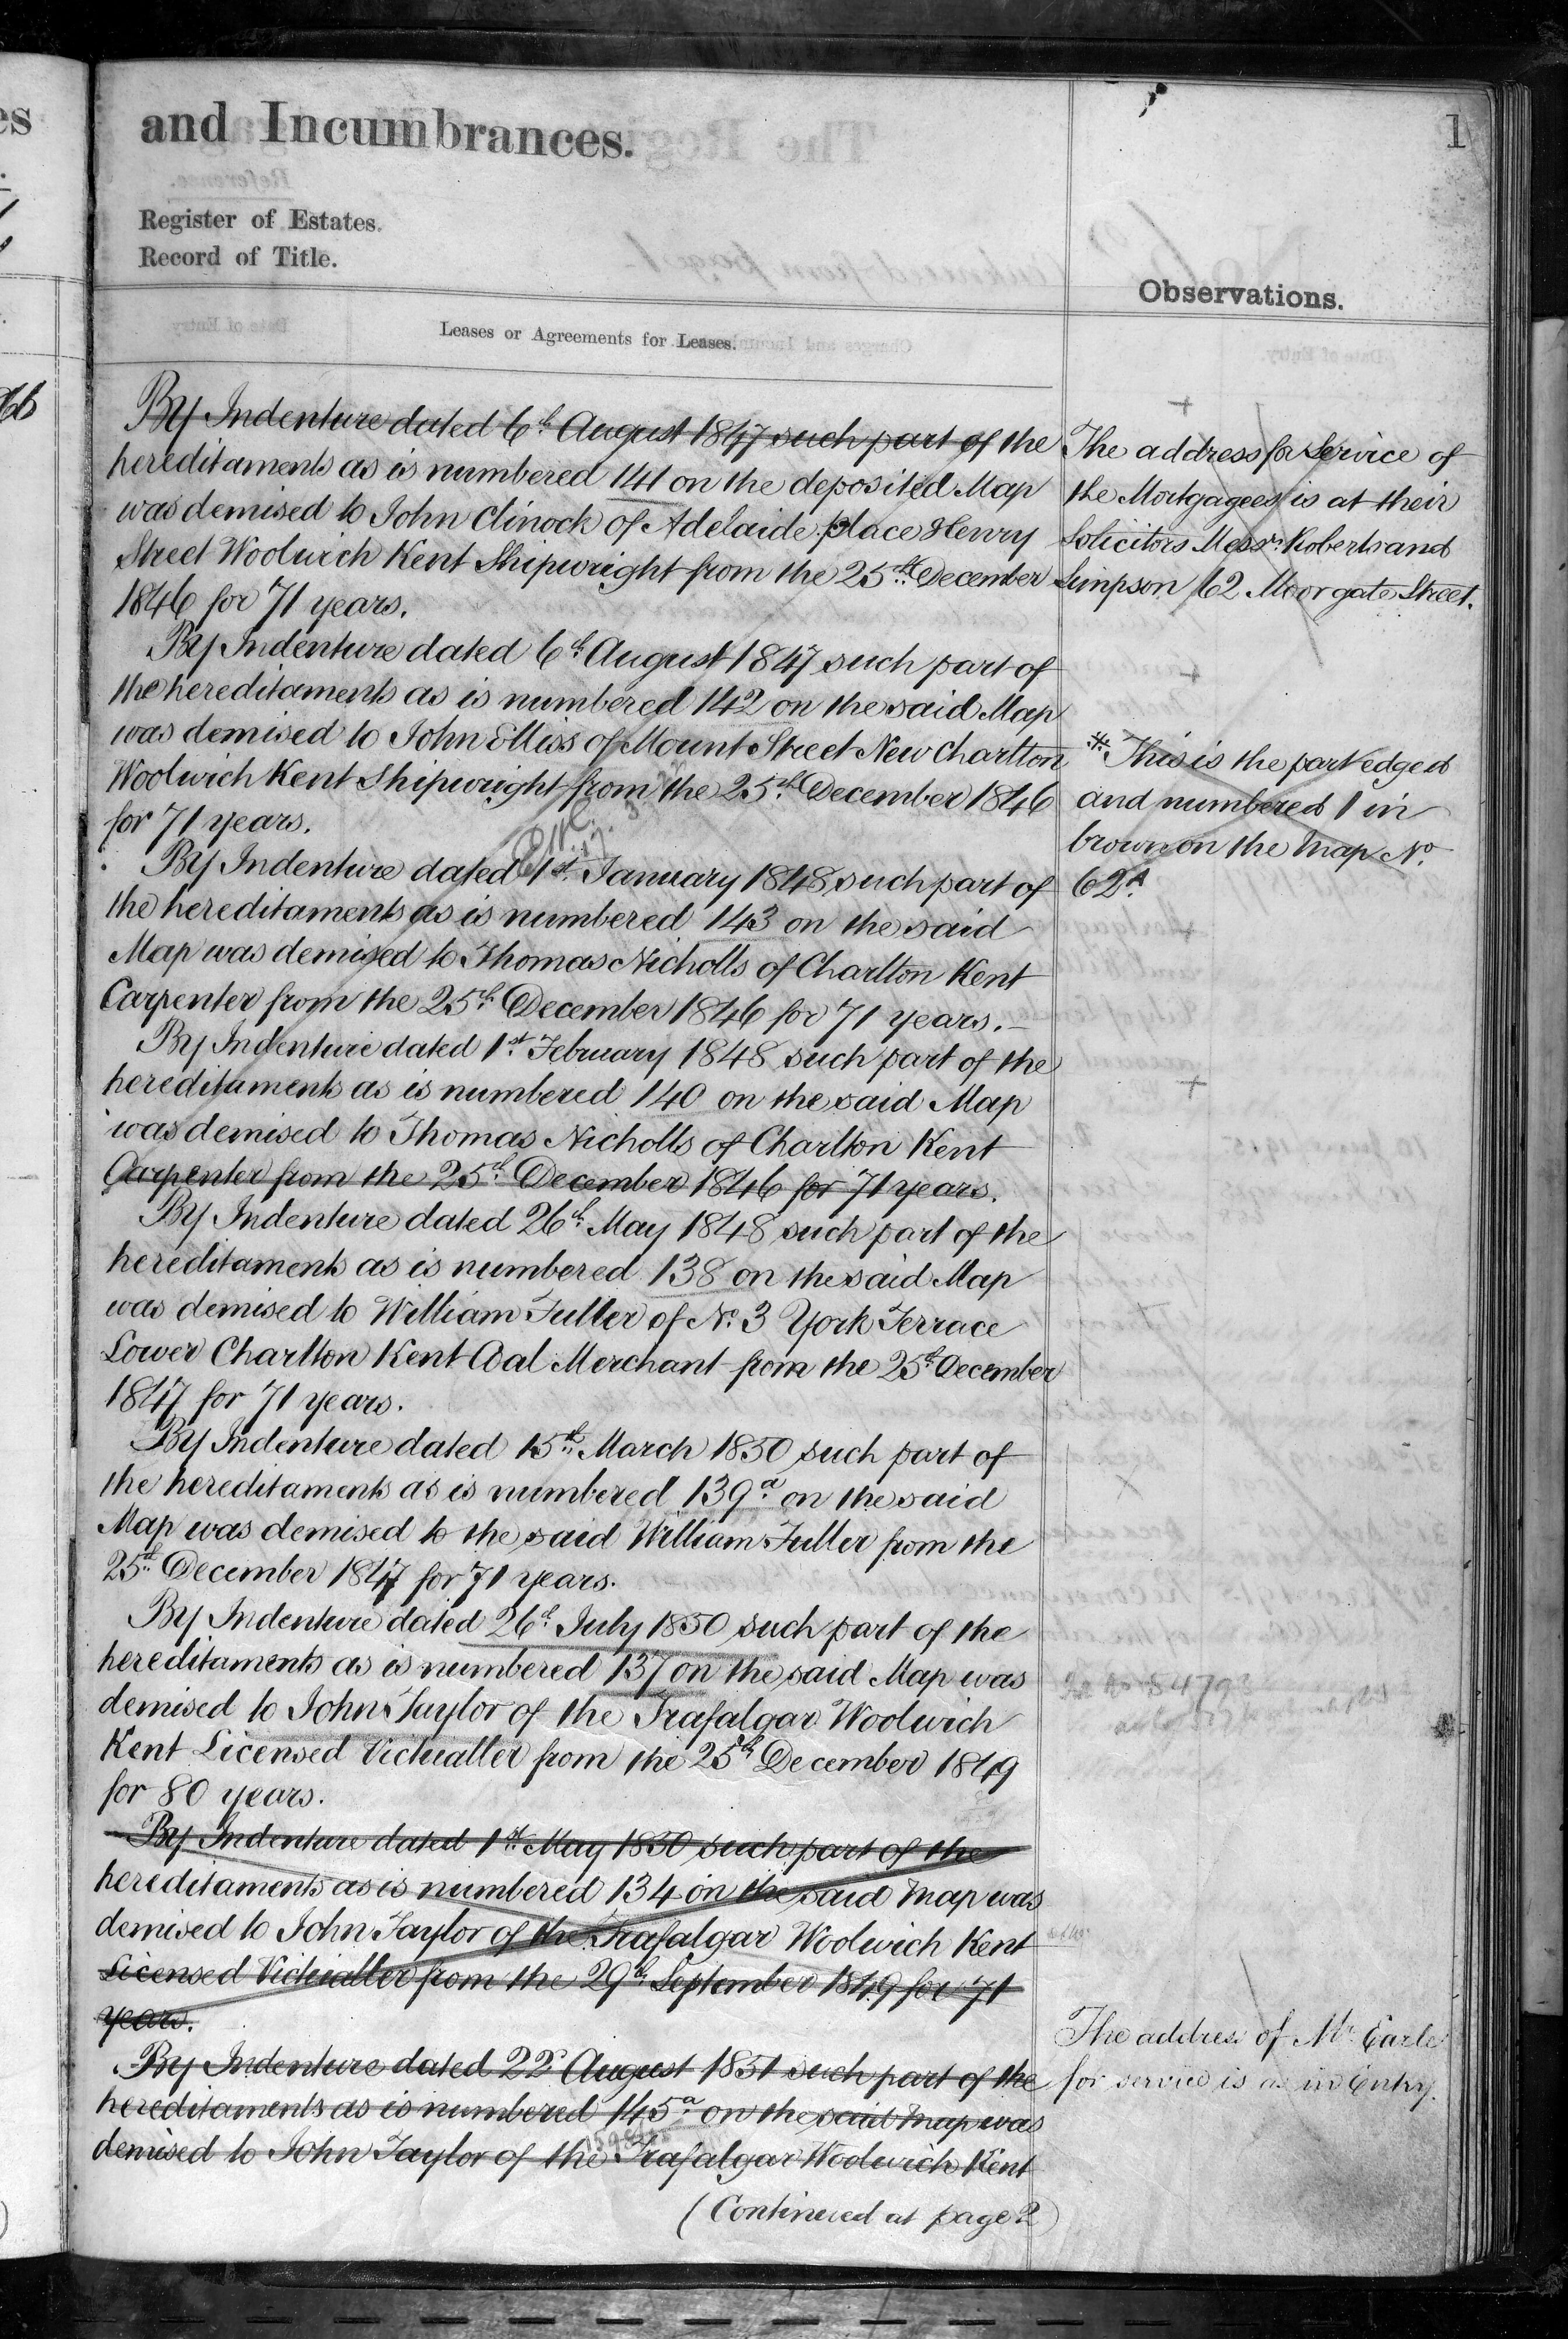 and Incumbrances.
1
Register of Estates.
Record of Title.
Observations.
Leases or Agreements for Leases.
By Indenture dated 6th August 1847 such part of the
hereditaments as is numbered 141 on the deposited Map
was demised to John Clinock of Adelaide place Henry
Street Woolwich Kent Shipwright from the 25th December
1846 for 71 years.
By Indenture dated 6th August 1847 such part of
the hereditaments as is numbered 142 on the said Map
was demised to John Elliss of Mount Street New Charlton
Woolwich Kent Shipwright from the 25th December 1846
for 71 years.
By Indenture dated 1st January 1848 such part of
the hereditaments as is numbered 143 on the said
Map was demised to Thomas Nicholls of Charlton Kent
Carpenter from the 25th December 1846 for 71 years.
By Indenture dated 1st February 1848 such part of the
hereditaments as is numbered 140 on the said Map
was demised to Thomas Nicholls of Charlton Kent
Carpenter from the 25th December 1846 for 71 years.
By Indenture dated 26th May 1848 such part of the
hereditaments as is numbered 138 on the said Map
was demised to William Fuller of No. 3 York Terrace
Lower Charlton Kent Coal Merchant from the 25th December
1847 for 71 years.
By Indenture dated 15th March 1850 such part of
the hereditaments as is numbered 139a on the said
Map was demised to the said William Fuller from the
25th December 1847 for 71 years.
By Indenture dated 26th July 1850 such part of the
hereditaments as is numbered 137 on the said Map was
demised to John Taylor of the Trafalgar Woolwich
Kent Licensed Victualler from the 25th December 1849
for 80 years.
By Indenture dated 1st May 1850 such part of the
hereditaments as is numbered 134 on the said Map was
demised to John Taylor of the Trafalgar Woolwich Kent
Licensed Victualler from the 29th September 1849 for 71
years.
By Indenture dated 22d August 1851 such part of the
hereditaments as is numbered 145a on the said Map was
demised to John Taylor of the Trafalgar Woolwich Kent
(Continued at page 2)
The address for service of
the Mortgagees is at their
Solicitors Messrs. Roberts and
Simpson 62 Moorgate Street.
* This is the part edged
and numbered 1 in
brown on the Map No.
62A
The address of Mr. Earle
for service is as in Entry.